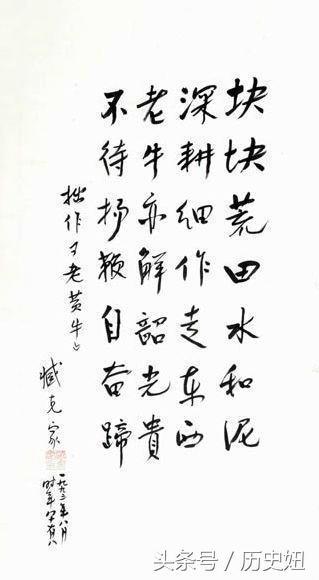 块块荒田水和泥
深耕细作走东西
老牛亦解韶光貴
不待扬鞭自奋蹄
拙作《老黄牛》
臧克家
一九九二年八月
时年八十有八
头条号 / 历史妞